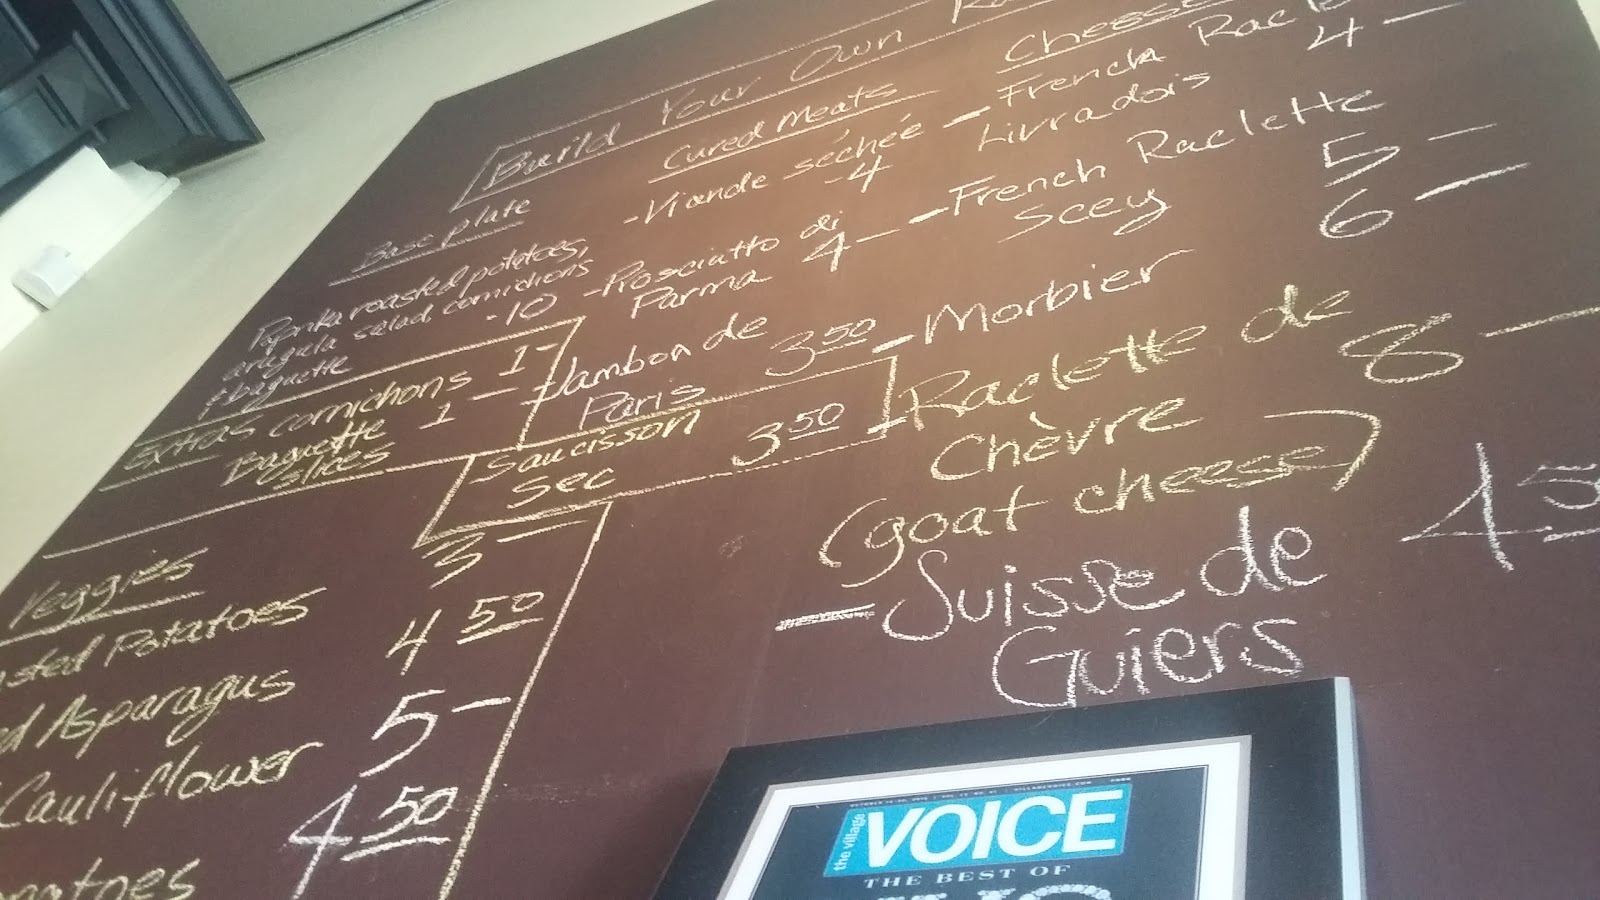 Build Your Own
Base plate
Paprika roasted potatoes,
arugula salad, cornichons
& baguette -10
Extras cornichons 1-
Baguette 1 -
slices
Veggies
Potatoes 3-
Asparagus 4 50
Cauliflower 5-
4 50
Cured Meats
-Viande séchée
-4
-Prosciutto di
Parma 4-
-Jambon de
Paris 3 50
Saucisson
sec 3 50
Cheese
-French
Livradois 4-
-French Raclette
Scey 5-
-Morbier 6-
-Raclette de
Chèvre 8-
(goat cheese)
-Suisse de
Guiers
the village
VOICE
THE BEST OF